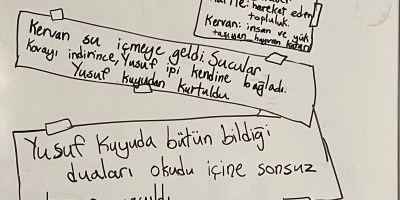 hareket eden
topluluk.
Kervan: insan ve yük
taşıyan hayvan katarı
Kervan su içmeye geldi. Sucular
kovayı indirince, Yusuf ipi kendine bağladı.
Yusuf kuyudan kurtuldu.
Yusuf kuyuda bütün bildiği
duaları okudu içine sonsuz